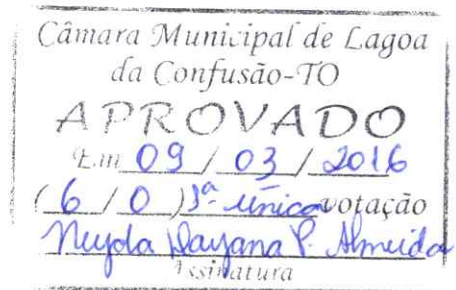 Câmara Municipal de Lagoa
da Confusão-TO
APROVADO
Em 09 / 03 / 2016
( 6 / 0 ) 1ª única votação
Dayana P. Almeida
Assinatura